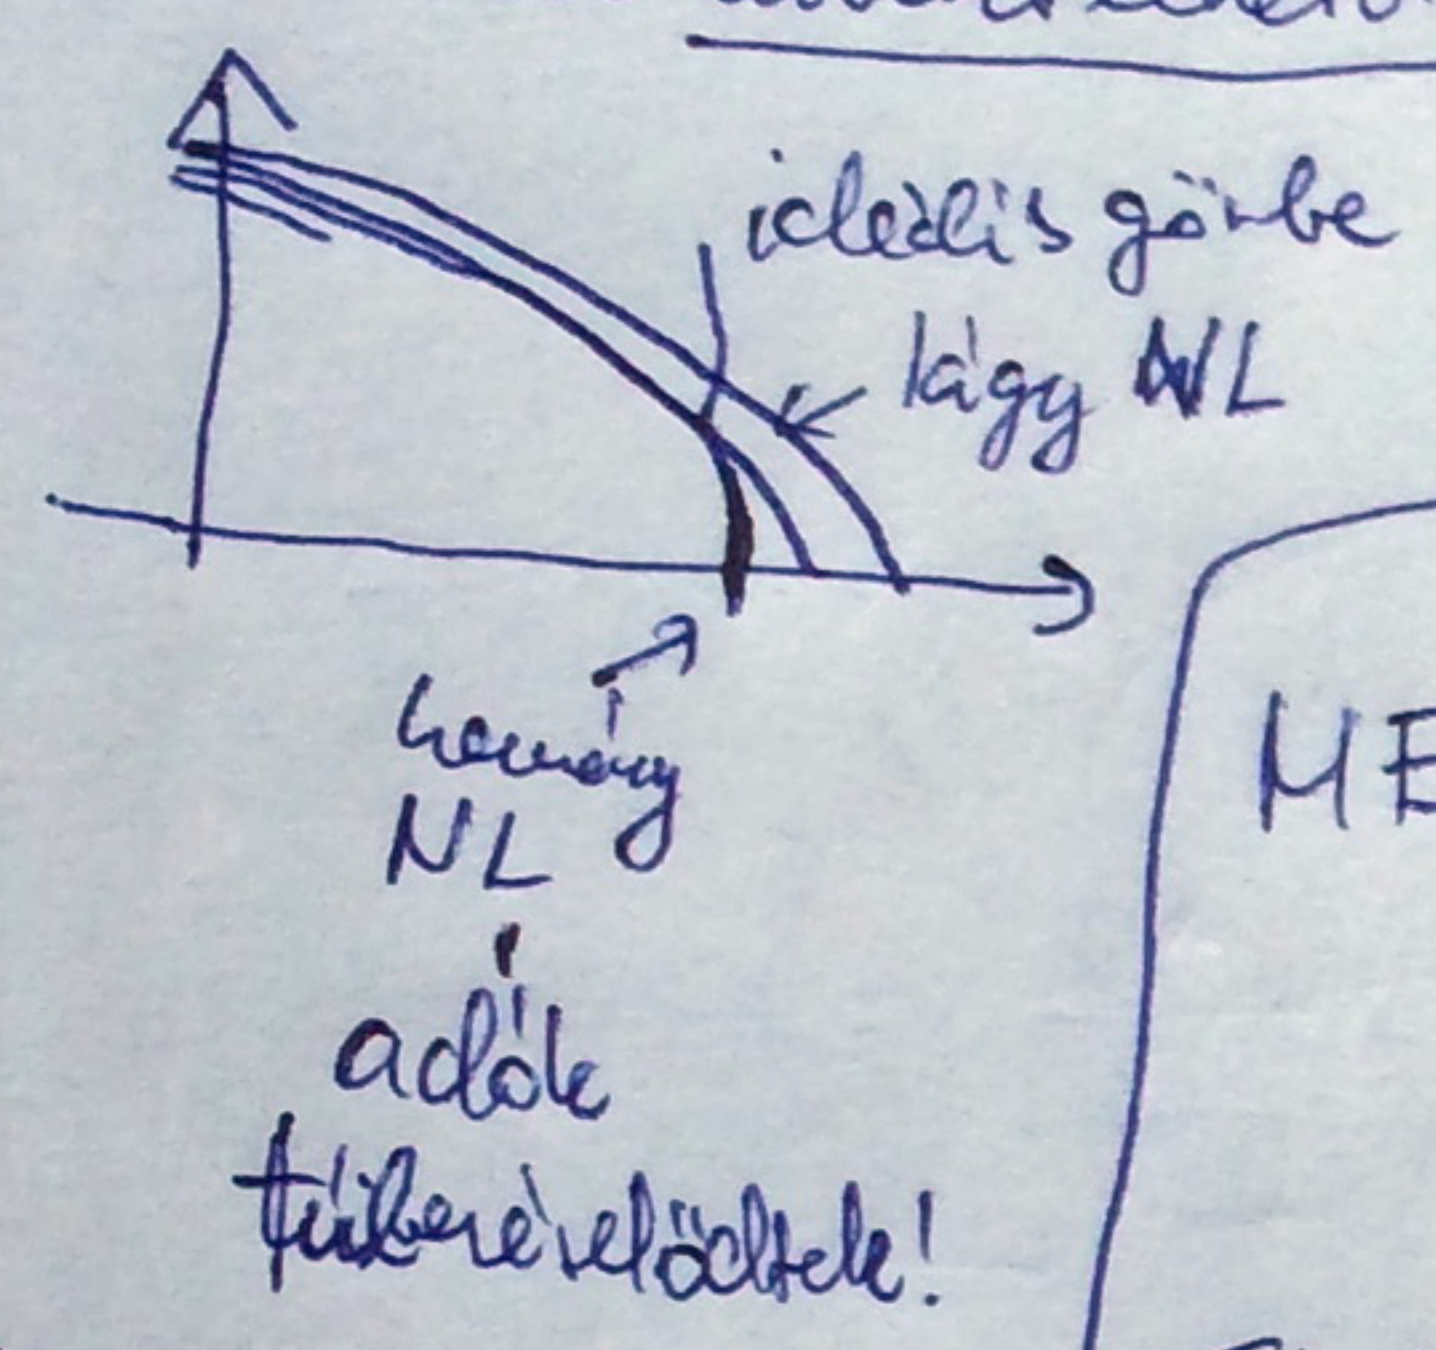 ideális görbe
lágy NL
kemény
NL
adók
túlvezérlődtek!
ME